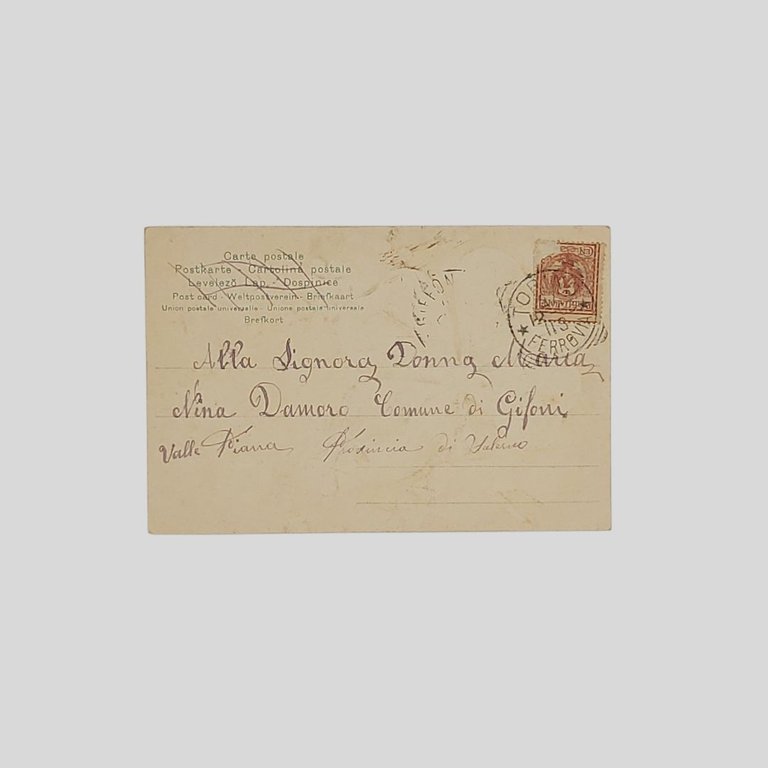 Carte postale
Postkarte - Cartolina postale
Levelező Lap. - Dospisnice
Post card - Weltpostverein - Briefkaart
Union postale universelle - Unione postale universale
Brefkort
TOR
12
FERROVIA
Alla Signora Donna Maria
Nina Damoro Comune di Gifoni
Valle Piana Provincia di Salerno